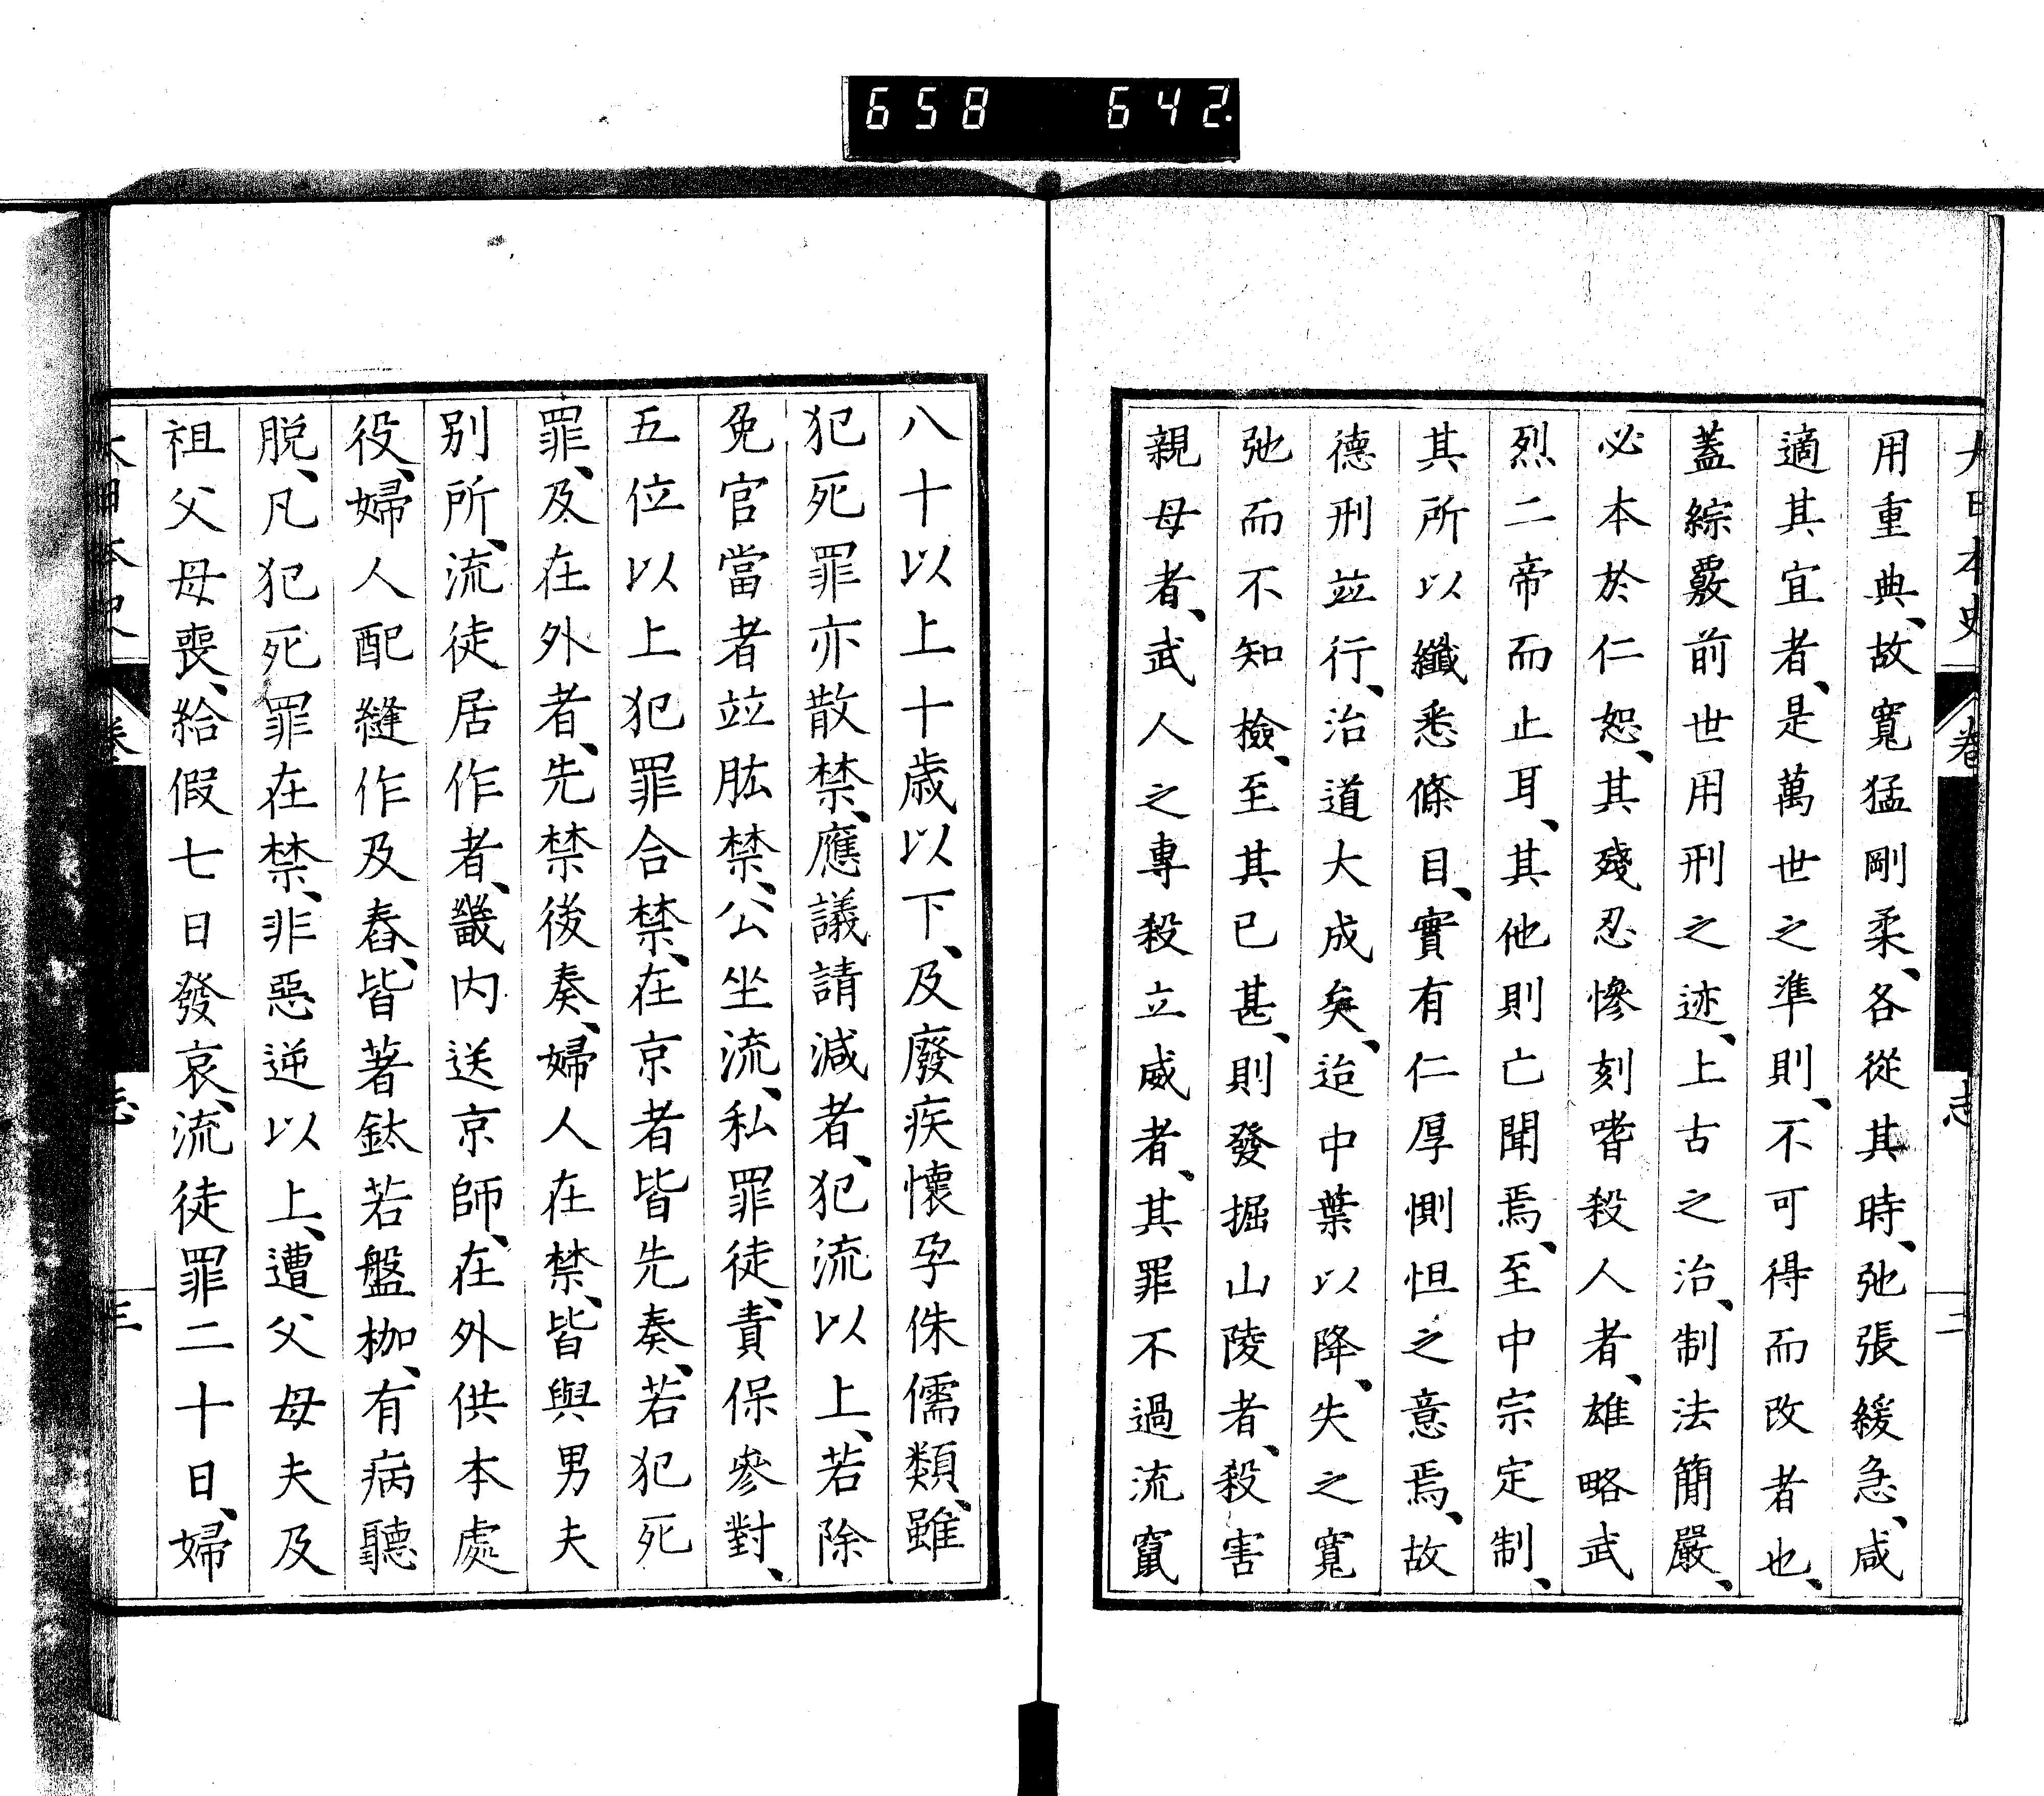 658 642.
大日本史 卷 志 二
用重典、故寬猛剛柔、各從其時、弛張緩急、咸
適其宜者、是萬世之準則、不可得而改者也、
蓋綜覈前世用刑之迹、上古之治、制法簡嚴、
必本於仁恕、其殘忍慘刻嗜殺人者、雄略武
烈二帝而止耳、其他則亡聞焉、至中宗定制、
其所以纖悉條目、實有仁厚惻怛之意焉、故
德刑竝行、治道大成矣、迨中葉以降、失之寬
弛而不知檢、至其已甚、則發掘山陵者、殺害
親母者、武人之專殺立威者、其罪不過流竄
八十以上十歲以下、及廢疾懷孕侏儒類、雖
犯死罪亦散禁、應議請減者、犯流以上、若除
免官當者竝肱禁、公坐流、私罪徒、責保參對、
五位以上犯罪合禁、在京者皆先奏、若犯死
罪、及在外者、先禁後奏、婦人在禁、皆與男夫
別所、流徒居作者、畿內送京師、在外供本處
役、婦人配縫作及舂、皆著鈦若盤枷、有病聽
脫、凡犯死罪在禁、非惡逆以上、遭父母夫及
祖父母喪、給假七日發哀、流徒罪二十日、婦
大日本史 卷 志 三